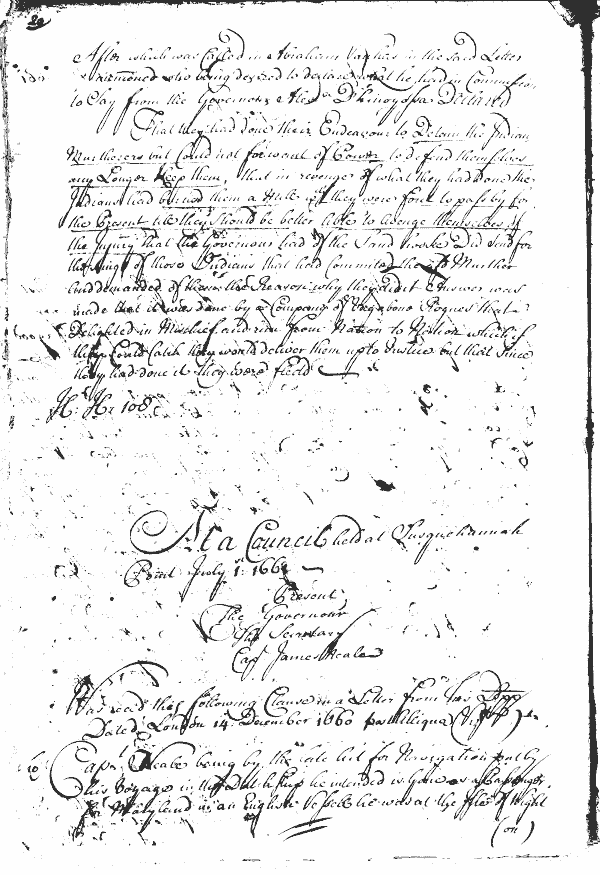 20
After which was Called in Abraham Van in the said Letter
mentioned who being desired to declare what he had in Commission
to Say from the Governour Alex D'hinoyossa Declared
That they had done their Endeavour to Detain the Indian
Murtherers but Could not for want of Power to defend themselves
any Longer keep them, that in revenge of what they had done the
Indians had burned them a Mill and they were forc't to pass by for
the Present till they Should be better able to avenge themselves of
the Injury that the Governour had of the Said Did Send for
the Kings of those Indians that had Committed the Murther
and demanded of them the Reason why they did it Answer was
made that it was done by a Company of Vagabond Rogues that
Delighted in Mischief and run from Nation to Nation which if
they Could Catch they would deliver them up to Justice but that Since
they had done it they were fledd
H: H: 108
At a Council held at Susquehannah
Point July 1: 1661
Present
The Governour
The Secretary
Capt James Neale
Was read the following Clause in a Letter from his Lopp
Dated London 14 December 1660 post aliqua (Vizt)
Capt Neale being by the late Act for Navigation put by
his Voyage in the Dutch Ship he intended is gone as a Passenger
for Maryland in an English Vessell he was at the Isle of Wight
(on)